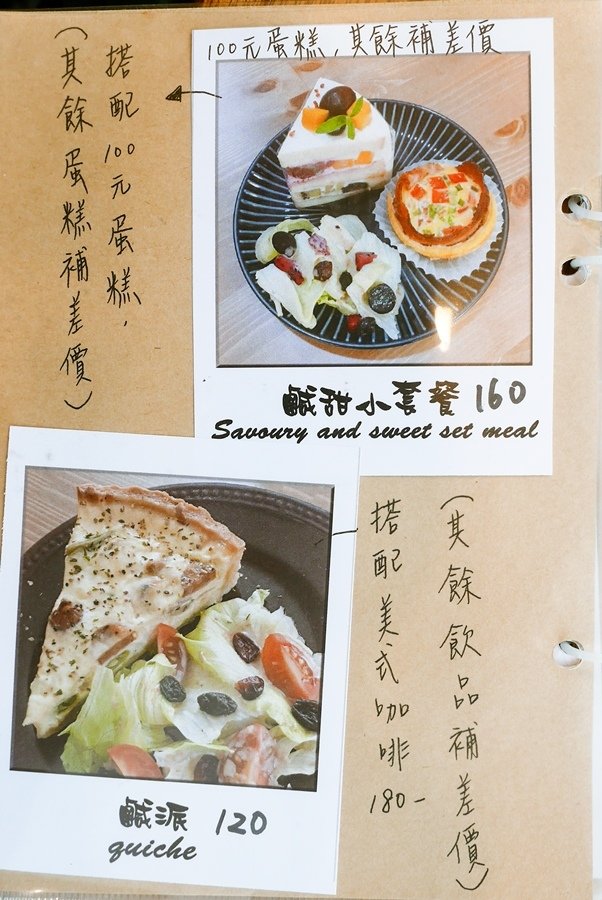 100元蛋糕,其餘補差價
搭配100元蛋糕,
(其餘蛋糕補差價)
鹹甜小套餐 160
Savoury and sweet set meal
(其餘飲品補差價)
搭配美式咖啡180-
鹹派 120
quiche